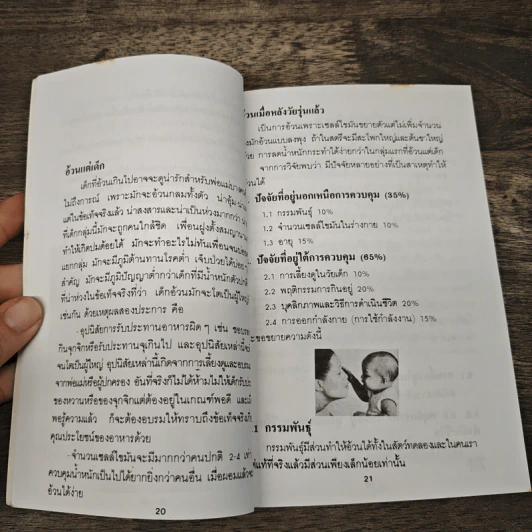 อ้วนแต่เด็ก
เด็กที่อ้วนเกินไปอาจจะดูน่ารักสำหรับพ่อแม่
ไม่ถึงการณ์ เพราะมักจะอ้วนกลมทั้งตัว น่าอุ้ม
แต่ในข้อเท็จจริงแล้ว น่าสงสารและน่าเป็นห่วงมากกว่า
ที่เด็กกลุ่มนี้มักจะถูกคนใกล้ชิด เพื่อนฝูงตั้งสมญา
ทำให้เกิดปมด้อยได้ มักจะทำอะไรไม่ทันเพื่อนจน
แยกกลุ่ม มักจะมีภูมิต้านทานโรคต่ำ เจ็บป่วยได้บ่อย
สำคัญ มักจะมีภูมิปัญญาต่ำกว่าเด็กที่มีน้ำหนักตัวปกติ
ที่น่าห่วงในข้อเท็จจริงที่ว่า เด็กอ้วนมักจะโตเป็นผู้ใหญ่
เช่นกัน ด้วยเหตุผลสองประการ คือ
-อุปนิสัยการรับประทานอาหารผิด ๆ เช่น ชอบ
กินจุกจิกหรือรับประทานจุเกินไป และอุปนิสัยเหล่านี้
จนโตเป็นผู้ใหญ่ อุปนิสัยเหล่านี้เกิดจากการเลี้ยงดูและอบรม
จากพ่อแม่หรือผู้ปกครอง อันที่จริงก็ไม่ได้ห้ามไม่ให้เด็ก
ของหวานหรือของจุกจิกแต่ต้องอยู่ในเกณฑ์พอดี และ
พอรู้ความแล้ว ก็จะต้องอบรมให้ทราบถึงข้อเท็จจริง
คุณประโยชน์ของอาหารด้วย
-จำนวนเซลล์ไขมันจะมีมากกว่าคนปกติ 2-4 เท่า
ควบคุมน้ำหนักเป็นไปได้ยากยิ่งกว่าคนอื่น เมื่อผอมแล้ว
อ้วนได้ง่าย
20
อ้วนเมื่อหลังวัยรุ่นแล้ว
เป็นการอ้วนเพราะเซลล์ไขมันขยายตัวแต่ไม่เพิ่มจำนวน
มักอ้วนแบบลงพุง ถ้าในสตรีจะมีสะโพกใหญ่และต้นขาใหญ่
ด้วย การลดน้ำหนักกระทำได้ง่ายกว่าในกลุ่มแรกที่อ้วนแต่เด็ก
จากการวิจัยพบว่า มีปัจจัยหลายอย่างที่เป็นสาเหตุทำให้
อ้วนได้
ปัจจัยที่อยู่นอกเหนือการควบคุม (35%)
1.1 กรรมพันธุ์ 10%
1.2 จำนวนเซลล์ไขมันในร่างกาย 10%
1.3 อายุ 15%
ปัจจัยที่อยู่ใต้การควบคุม (65%)
2.1 การเลี้ยงดูในวัยเด็ก 10%
2.2 พฤติกรรมการกินอยู่ 20%
2.3 บุคลิกภาพและวิธีการดำเนินชีวิต 20%
2.4 การออกกำลังกาย (การใช้กำลังงาน) 15%
ขอขยายความดังนี้
.1 กรรมพันธุ์
กรรมพันธุ์มีส่วนทำให้อ้วนได้ทั้งในสัตว์ทดลองและในคนเรา
แต่แท้ที่จริงแล้วมีส่วนเพียงเล็กน้อยเท่านั้น
21